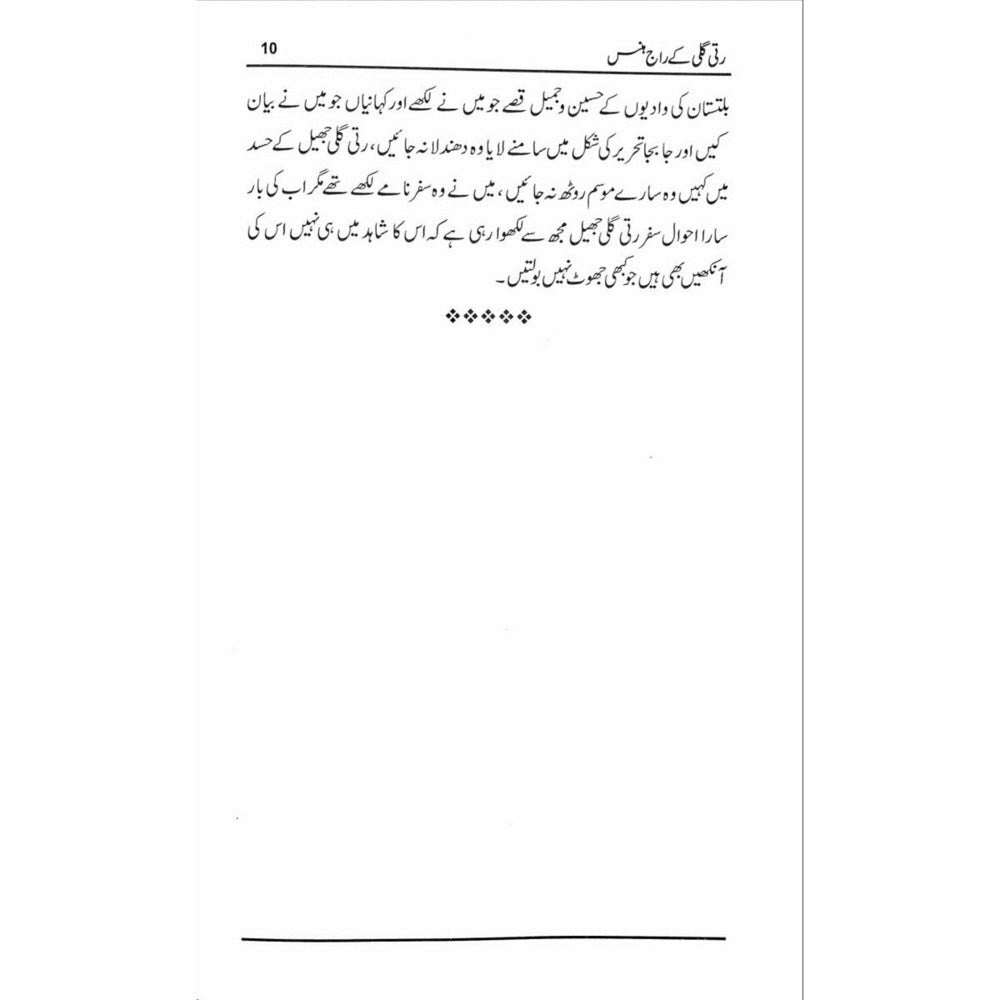 رتی گلی کے راج ہنس
10
بلتستان کی وادیوں کے حسین وجمیل قصے جو میں نے لکھے اور کہانیاں جو میں نے بیان
کیں اور جابجا تحریر کی شکل میں سامنے لایا وہ دھندلا نہ جائیں، رتی گلی جھیل کے حسد
میں کہیں وہ سارے موسم روٹھ نہ جائیں، میں نے وہ سفرنامے لکھے تھے مگر اب کی بار
سارا احوال سفر رتی گلی جھیل مجھ سے لکھوا رہی ہے کہ اس کا شاہد میں ہی نہیں اس کی
آنکھیں بھی ہیں جو کبھی جھوٹ نہیں بولتیں۔